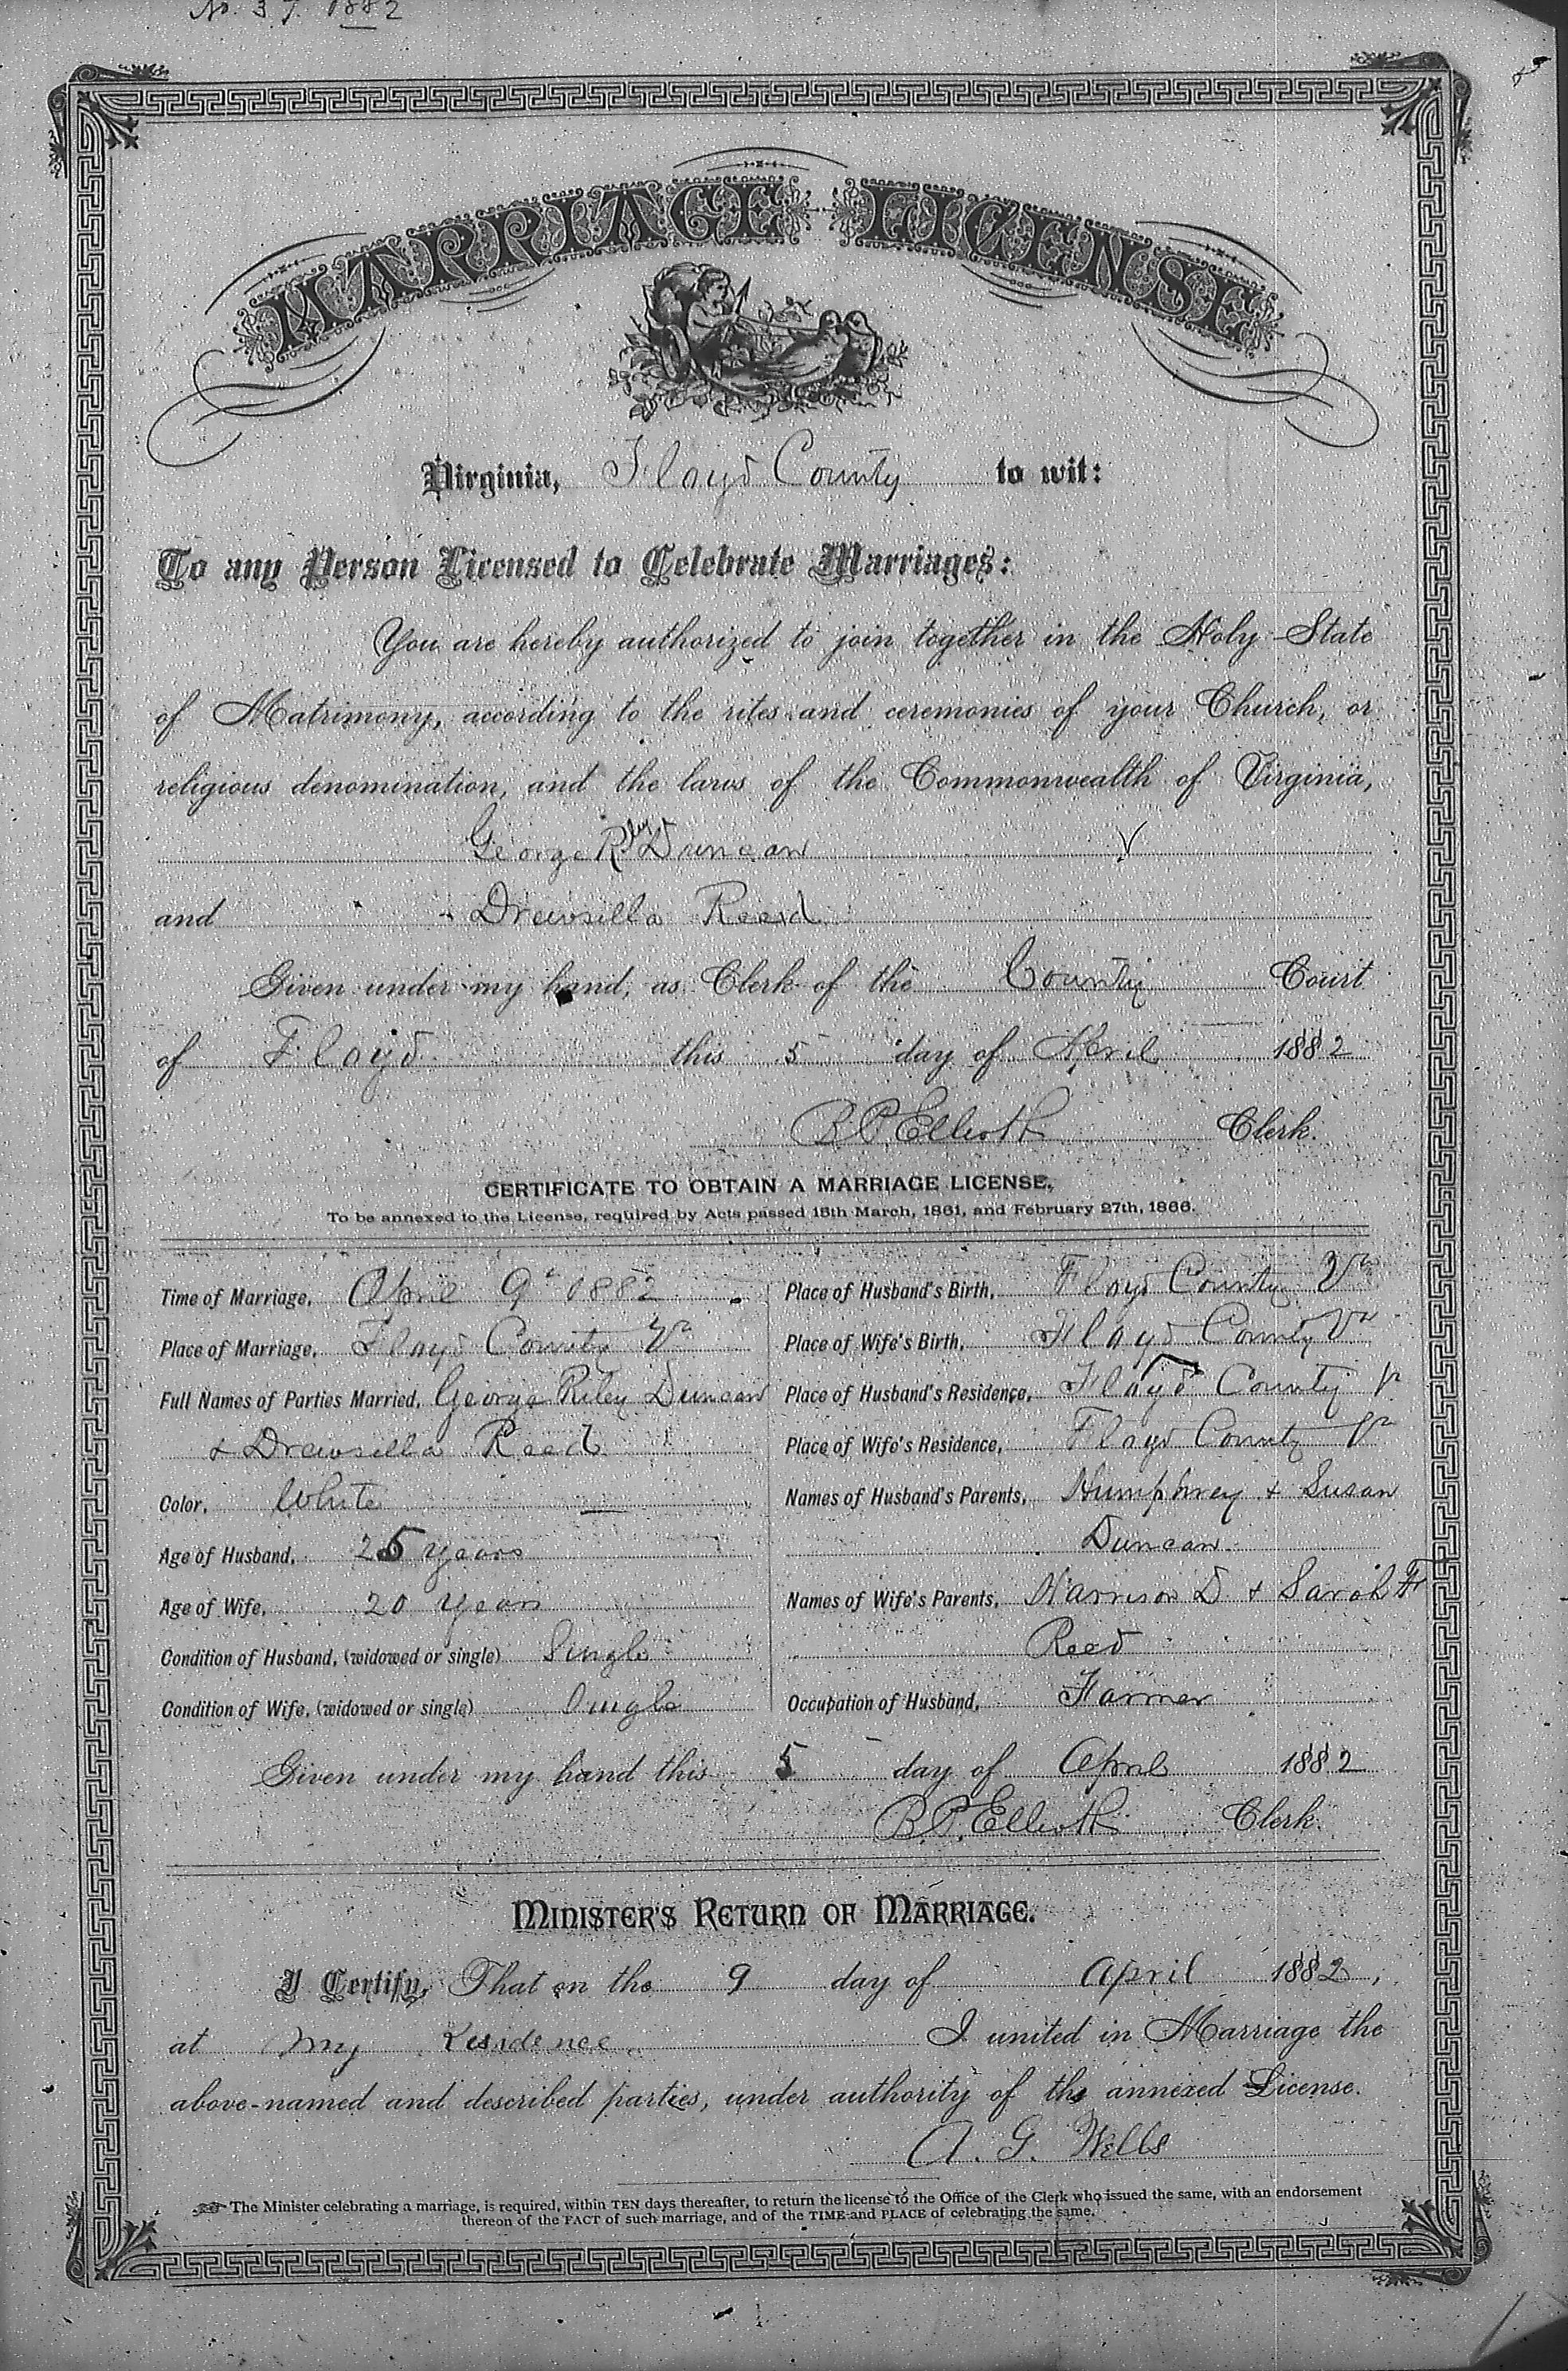 No. 37. 1882
MARRIAGE LICENSE
Virginia, Floyd County to wit:
To any Person Licensed to Celebrate Marriages:
You are hereby authorized to join together in the Holy State
of Matrimony, according to the rites and ceremonies of your Church, or
religious denomination, and the laws of the Commonwealth of Virginia,
George Riley Duncan
and Drewsilla Reed
Given under my hand, as Clerk of the County Court
of Floyd this 5 day of April 1882
B.P. Elliott Clerk.
CERTIFICATE TO OBTAIN A MARRIAGE LICENSE,
To be annexed to the License, required by Acts passed 15th March, 1861, and February 27th, 1866.
Time of Marriage, April 9th 1882
Place of Marriage, Floyd County Va
Full Names of Parties Married, George Riley Duncan
& Drewsilla Reed
Color, White
Age of Husband, 25 years
Age of Wife, 20 years
Condition of Husband, (widowed or single) Single
Condition of Wife, (widowed or single) Single
Place of Husband's Birth, Floyd County Va
Place of Wife's Birth, Floyd County Va
Place of Husband's Residence, Floyd County V
Place of Wife's Residence, Floyd County Va
Names of Husband's Parents, Humphrey & Susan
Duncan
Names of Wife's Parents, Harrison D & Sarah F
Reed
Occupation of Husband, Farmer
Given under my hand this 5 day of April 1882
B.P. Elliott Clerk.
MINISTER'S RETURN OF MARRIAGE.
I Certify, That on the 9 day of April 1882,
at my Residence I united in Marriage the
above-named and described parties, under authority of the annexed License.
A. G. Wells
The Minister celebrating a marriage, is required, within TEN days thereafter, to return the license to the Office of the Clerk who issued the same, with an endorsement
thereon of the FACT of such marriage, and of the TIME and PLACE of celebrating the same.